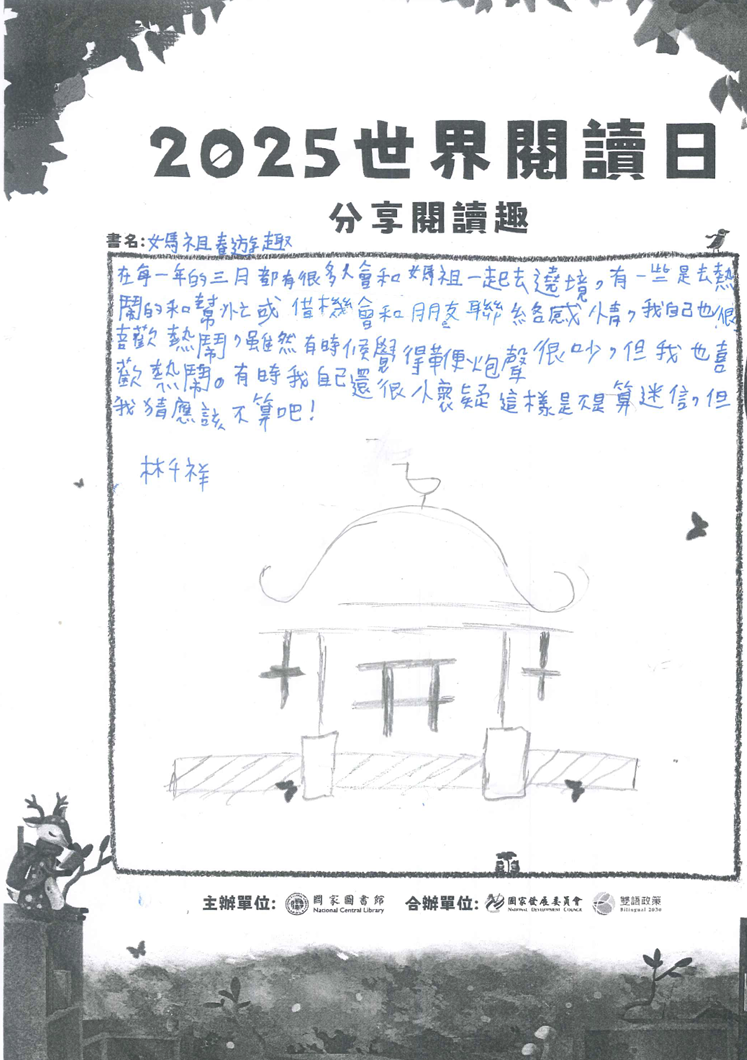 2025世界閱讀日
分享閱讀趣
書名:媽祖春遊趣
在每一年的三月都有很多人會和媽祖一起去遶境,有一些是去熱
鬧的和幫忙或借機會和朋友聯絡感情,我自己也很
喜歡熱鬧,雖然有時候覺得鞭炮聲很吵,但我也喜
歡熱鬧。有時我自己還很懷疑這樣是不是算迷信,但
我猜應該不算吧!
林千祥
主辦單位: 國家圖書館 合辦單位: 國家發展委員會 雙語政策
National Central Library National Development Council Bilingual 2030